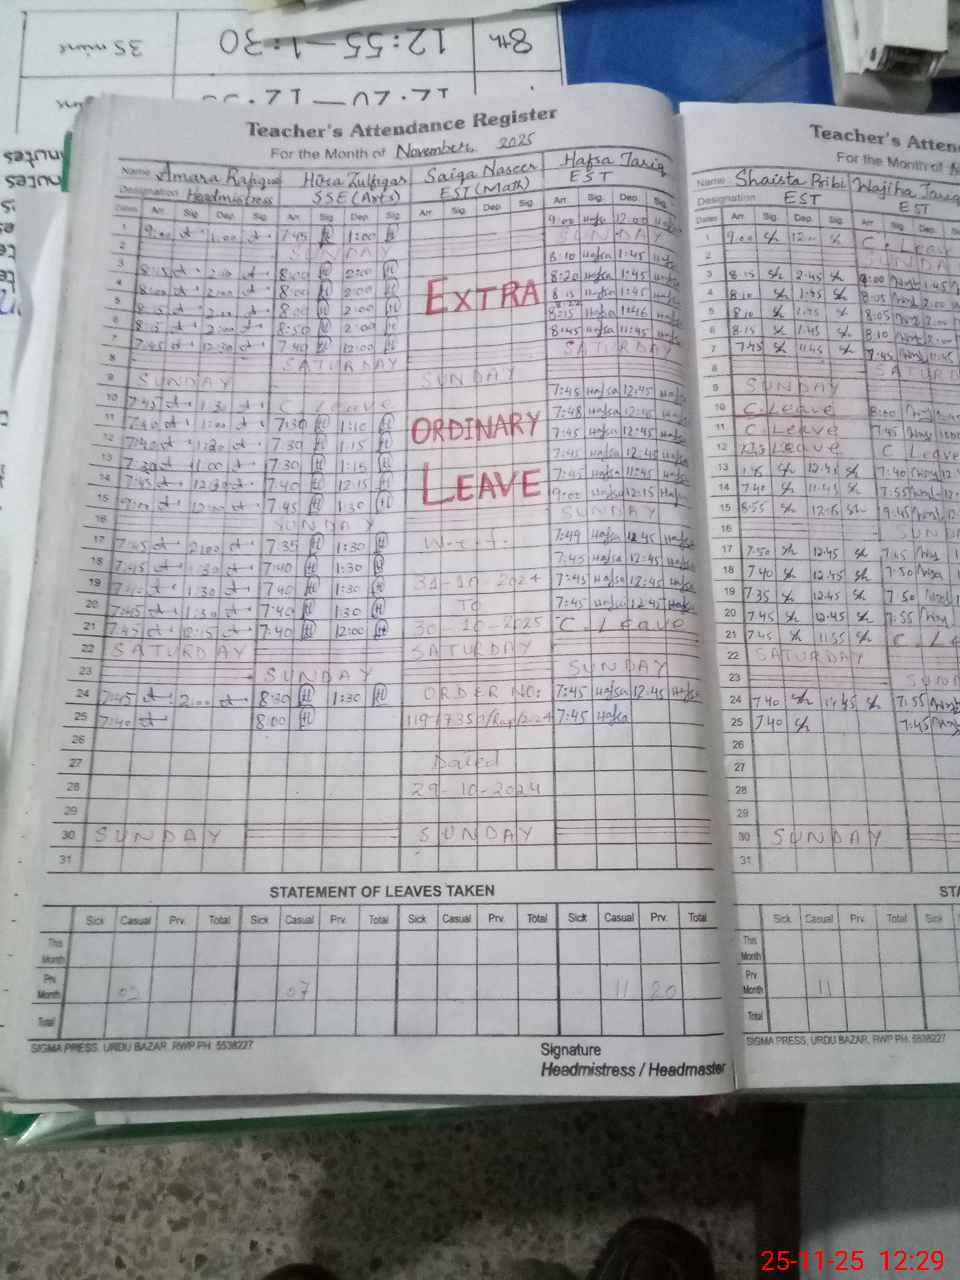 8th 12:55—1:30 35 mins
Teacher's Attendance Register
For the Month of November, 2025
Name Amara Rafique Hira Zulfiqar Saiqa Naseer Hafsa Tariq
Designation Headmistress SSE (Arts) EST (Math) EST
Dates Arr. Sig. Dep. Sig. Arr. Sig. Dep. Sig. Arr. Sig. Dep. Sig. Arr. Sig. Dep. Sig.
1 9:00 1:00 7:45 1:00 9:00 Hafsa 12:00 Hafsa
2 SUNDAY SUNDAY
3 8:15 8:10 2:00 8:10 Hafsa 1:45 Hafsa
4 8:00 2:00 8:00 2:00 8:20 Hafsa 1:45 Hafsa
5 8:15 2:00 8:00 2:00 8:15 Hafsa 1:45 Hafsa
6 8:15 2:00 8:50 2:00 8:15 Hafsa 1:46 Hafsa
7 7:45 12:30 7:40 12:00 8:45 Hafsa 11:45 Hafsa
EXTRA
8 SATURDAY SATURDAY
9 SUNDAY SUNDAY
10 7:45 1:30 C. Leave 7:45 Hafsa 12:45 Hafsa
11 7:40 1:00 7:30 1:10 ORDINARY 7:48 Hafsa 12:45 Hafsa
12 7:40 1:30 7:30 1:15 7:45 Hafsa 12:45 Hafsa
13 7:30 1:00 7:30 1:15 7:45 Hafsa 12:45 Hafsa
14 7:45 12:30 7:40 12:15 LEAVE 7:45 Hafsa 11:45 Hafsa
15 9:00 12:00 7:45 1:30 9:02 Hafsa 12:15 Hafsa
16 SUNDAY SUNDAY
17 7:45 2:00 7:35 1:30 W.e.f. 7:49 Hafsa 12:45 Hafsa
18 7:45 1:30 7:40 1:30 7:45 Hafsa 12:45 Hafsa
19 1:30 7:40 1:30 31-10-2024 7:45 Hafsa 12:45 Hafsa
20 7:45 1:30 7:40 1:30 TO 7:45 Hafsa 12:45 Hafsa
21 7:45 12:15 7:40 12:00 30-10-2025 C. Leave
22 SATURDAY SATURDAY
23 SUNDAY SUNDAY
24 7:45 2:00 8:30 1:30 ORDER NO: 7:45 Hafsa 12:45 Hafsa
25 7:40 8:00 7:45 Hafsa
26
27 Dated
28 29-10-2024
29
30 SUNDAY SUNDAY
31
STATEMENT OF LEAVES TAKEN
Sick Casual Prv. Total Sick Casual Prv. Total Sick Casual Prv. Total Sick Casual Prv. Total
This Month
Prv. Month 03 07 11 20
Total
SIGMA PRESS, URDU BAZAR, RWP PH: 5538227
Signature
Headmistress / Headmaster
Teacher's Atten
For the Month of
Name Shaista Bibi Wajiha Tariq
Designation EST EST
Dates Arr. Sig. Dep. Sig. Arr. Sig. Dep.
1 9:00 12:00 C. Leav
2 SUNDA
3 8:15 2:45 8:00 1:45
4 8:10 1:45 8:05 2:00
5 8:10 1:45 8:05 2:00
6 8:15 1:45 8:10 2:00
7 7:45 11:45 7:45 11:45
8 SATUR
9 SUNDAY
10 C. Leave 8:00
11 C. Leave 7:45
12 Leave C Leave
13 12:45 7:40 12
14 7:40 11:45 7:55 12
15 8:55 12:15 9:45 12
16 SUN
17 7:50 12:45 7:45
18 7:40 12:45 7:50
19 7:35 12:45 7:50
20 7:45 12:45 7:55
21 7:45 11:55 C. Le
22 SATURDAY
23 SUN
24 7:40 7:55
25 7:40 7:45
26
27
28
29
30 SUNDAY
31
STA
Sick Casual Prv. Total Sick
This Month
Prv. Month 11
Total
SIGMA PRESS, URDU BAZAR, RWP PH: 5538227
25-11-25 12:29